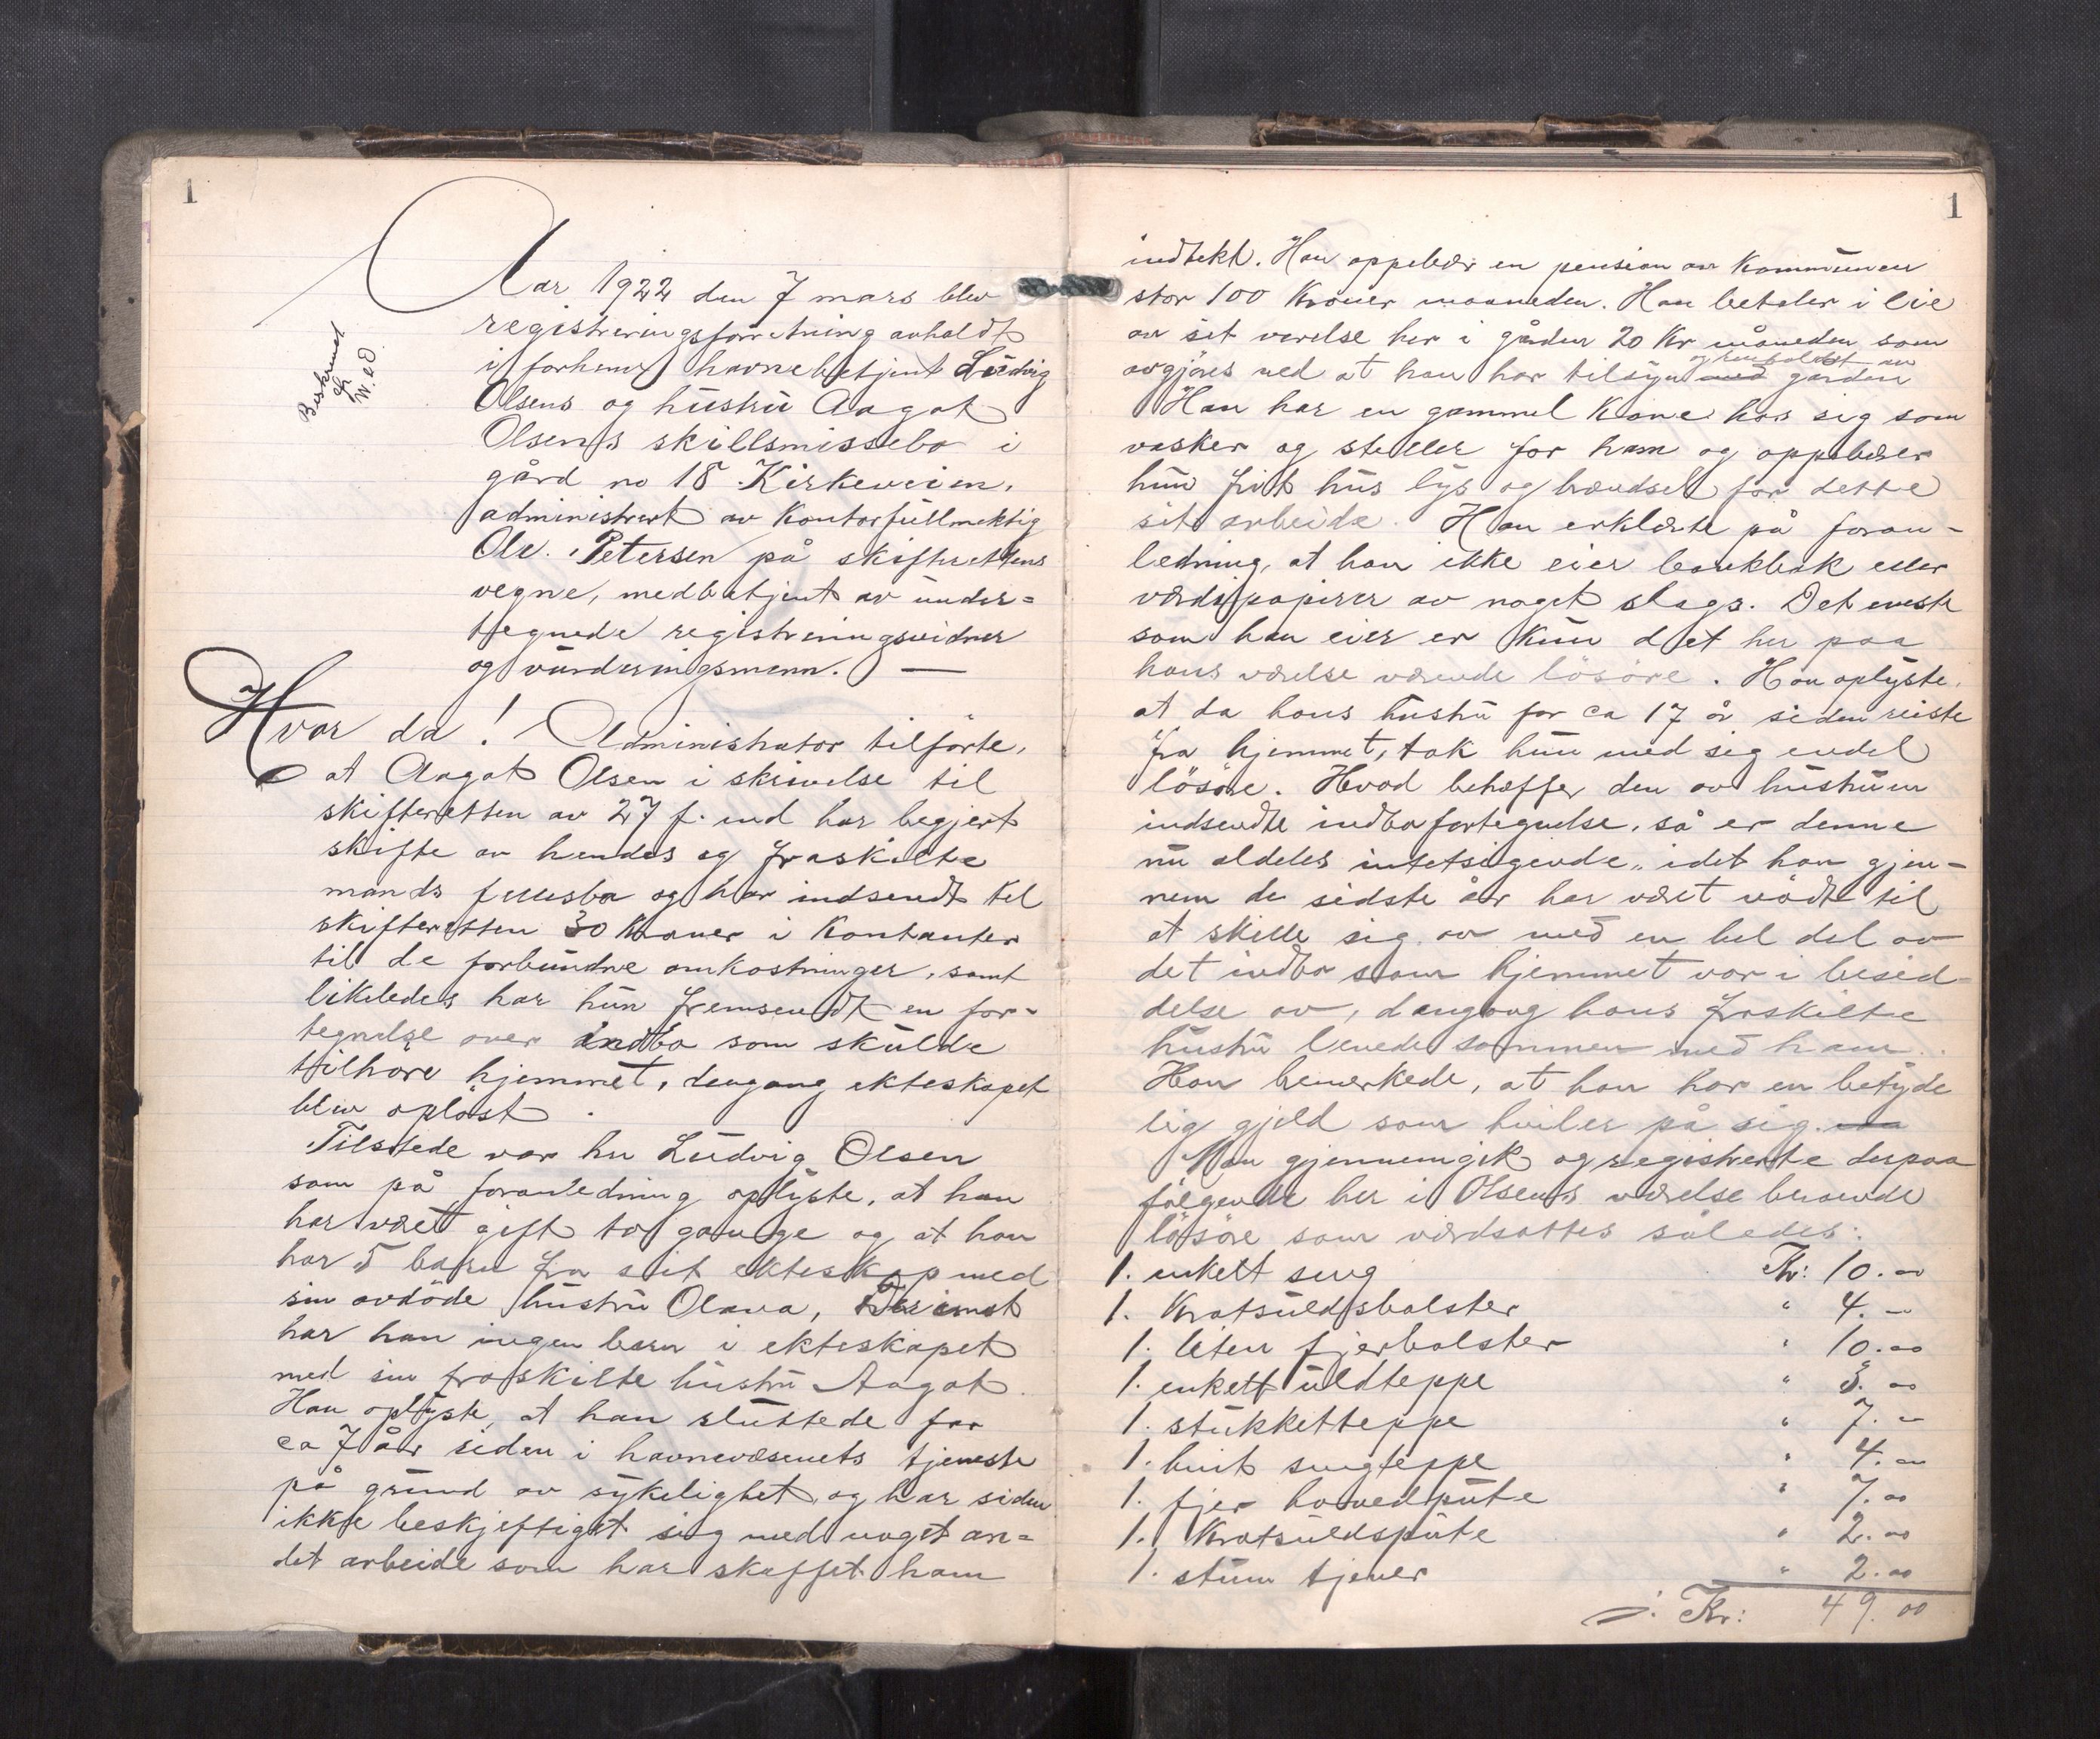 1
Aar 1922 den 7 mars blev
registreringsforretning avholdt
i forhenv havnebetjent Ludvig
Olsens og hustru Aagot
Olsens skillsmissebo i
gård no 18 Kirkeveien,
administrert av Kontorfullmektig
Ole. Petersen på skifterettens
vegne, medbetjent av under=
tegnede registreringsvidner
og vurderingsmenn. —
Hvor da! Administrator tilførte,
at Aagot Olsen i skrivelse til
skifteretten av 27 f. md har begjert
skifte av hendes og fraskilte
mands fellesbo og har indsendt til
skifteretten 30 Kroner i Kontanter
til de forbundne omkostninger, samt
likeledes har hun fremsendt en for-
tegnelse over indbo som skulde
tilhøre hjemmet, dengang ekteskapet
blev opløst.
Tilstede var hr Ludvig Olsen
som på foranledning oplyste, at han
har været gift to gange og at han
har 5 barn fra sit ekteskap med
sin avdöde hustru Olava, Derimot
har han ingen barn i ekteskapet
med sin fraskilte hustru Aagot.
Han oplyste, at han sluttede for
ca 7 år siden i havnevæsenets tjeneste
på grund av sykelighet, og har siden
ikke beskjeftiget sig med noget an=
det arbeide som har skaffet ham
1
indtekt. Han oppebær en pension av Kommunen
stor 100 Kroner maaneden. Han betaler i leie
av sit værelse her i gården 20 Kr måneden som
avgjöres ved at han har tilsyn med og renholdet av gården
Han har en gammel Kone hos sig som
vasker og steller for ham og oppebærer
hun frit hus lys og brændsel for dette
sit arbeide. Han erklærte på foran-
ledning, at han ikke eier bankbok eller
værdipapirer av noget slags. Det eneste
som han eier er Kun det her paa
hans værelse værende lösöre. Han oplyste,
at da hans hustru for ca 17 år siden reiste
fra hjemmet, tok hun med sig endel
lösöre. Hvad behøffer den av hustruen
indsendte indbofortegnelse, så er denne
nu aldeles intetsigende, idet han gjen-
nem de sidste år har været nödt til
at skille sig av med en hel del av
det indbo som hjemmet var i besid-
delse av, dengang hans fraskilte
hustru levede sammen med ham.
Han bemerkede, at han har en betyde
lig gjeld som hviler på sig.
Man gjennemgik og registrerte derpaa
fölgende her i Olsens værelse beroende
lösöre som værdsattes således:
1. enkelt seng Kr: 10.00
1. Kratsuldsbolster " 4.—
1. liten fjerbolster " 10.00
1. enkelt uldteppe " 3.00
1. stukketteppe " 7.—
1. hvit sengteppe " 4.00
1. fjer hovedpute " 7.00
1. Kratsuldspute " 2.00
1. stum tjener " 2.00
Kr: 49.00